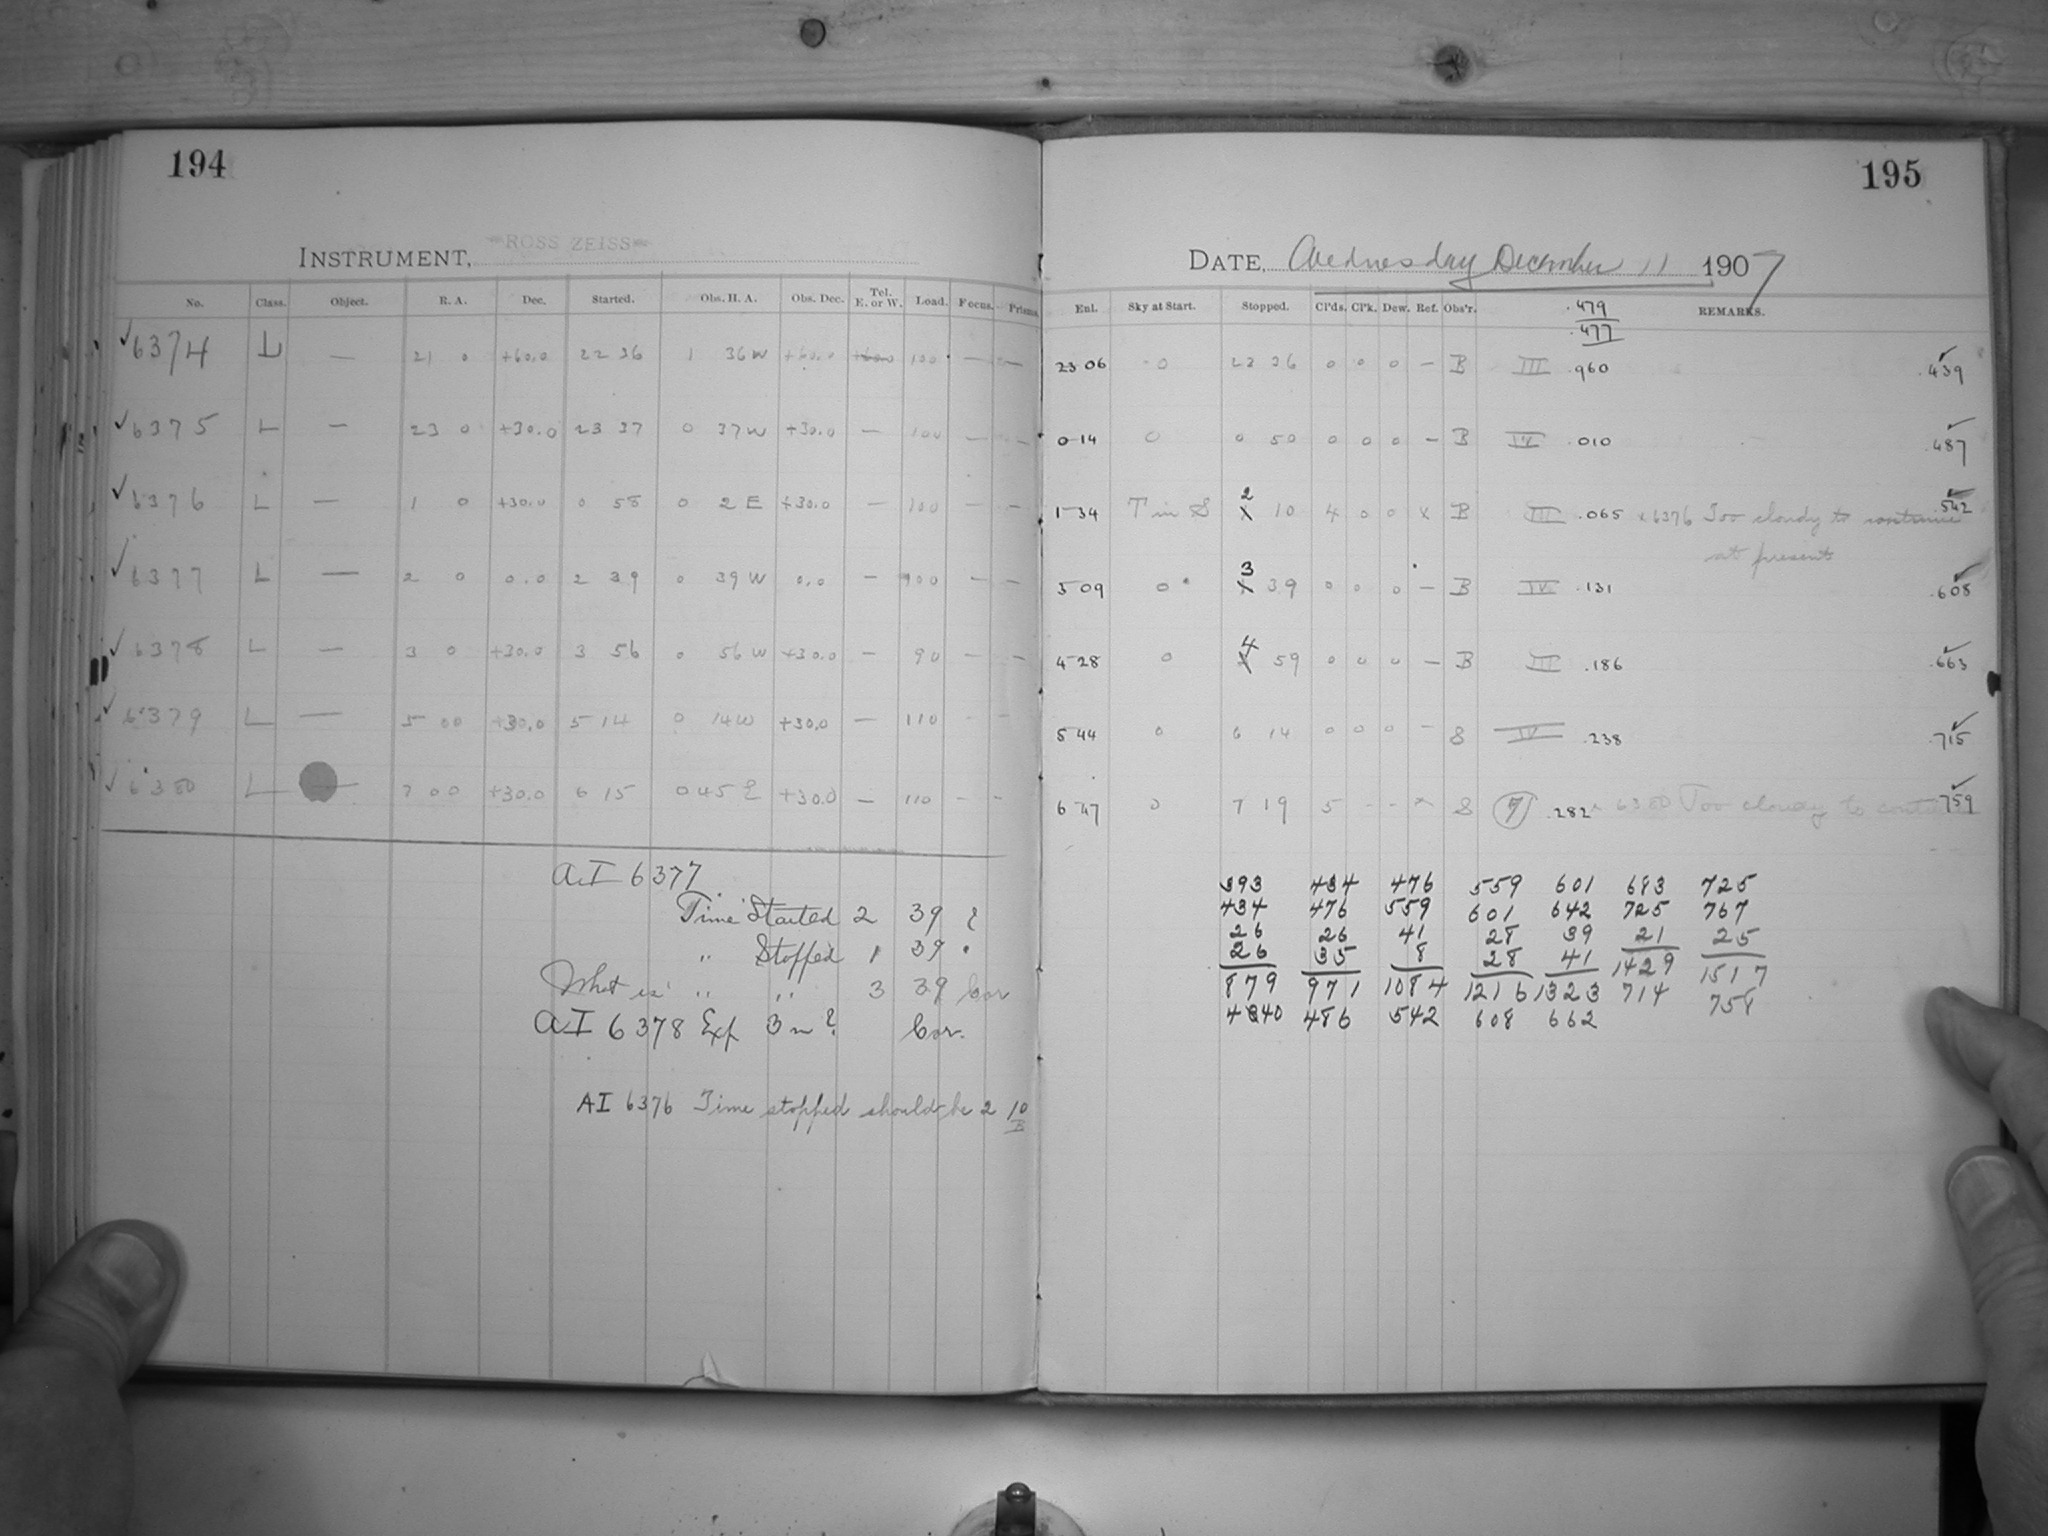 194
INSTRUMENT, ROSS ZEISS
No. Class. Object. R. A. Dec. Started. Obs. H. A. Obs. Dec. Tel. E. or W. Load. Focus. Prisms.
✓6374 L — 21 0 +60.0 22 36 1 36W +60.0 100 — —
✓6375 L — 23 0 +30.0 23 37 0 37W +30.0 — 100 — —
✓6376 L — 1 0 +30.0 0 58 0 2 E +30.0 — 100 — —
✓6377 L — 2 0 0.0 2 39 0 39W 0.0 — 100 — —
✓6378 L — 3 0 +30.0 3 56 0 56W +30.0 — 90 — —
✓6379 L — 5 00 +30.0 5 14 0 14W +30.0 — 110 - -
✓6380 L — 7 00 +30.0 6 15 0 45 E +30.0 — 110 - -
AI 6377
Time Started 2 39 ?
" Stopped 1 39 "
What is " " 3 39 Cor
AI 6378 Exp 3m? Cor.
AI 6376 Time stopped should be 2 10
B
195
DATE, Wednesday December 11 1907
Enl. Sky at Start. Stopped. Cl'ds. Cl'k. Dew. Ref. Obs'r. .479 REMARKS.
.477
23 06 0 23 36 0 0 0 — B III .960 .439
0 14 0 0 50 0 0 0 — B IV .010 .487
1 34 T in S 2 10 4 0 0 x B III .065 x 6376 Too cloudy to continue .542
at present
3 09 0 3 39 0 0 0 — B IV .131 .608
4 28 0 4 59 0 0 0 — B III .186 .663
5 44 0 6 14 0 0 0 - S IV .238 .715
6 47 0 7 19 5 - - x S 7 .282 x 6380 Too cloudy to .759
393 434 476 559 601 683 725
434 476 559 601 642 725 767
26 26 41 28 39 21 25
26 35 8 28 41 1429 1517
879 971 1084 1216 1323 714 758
440 486 542 608 662